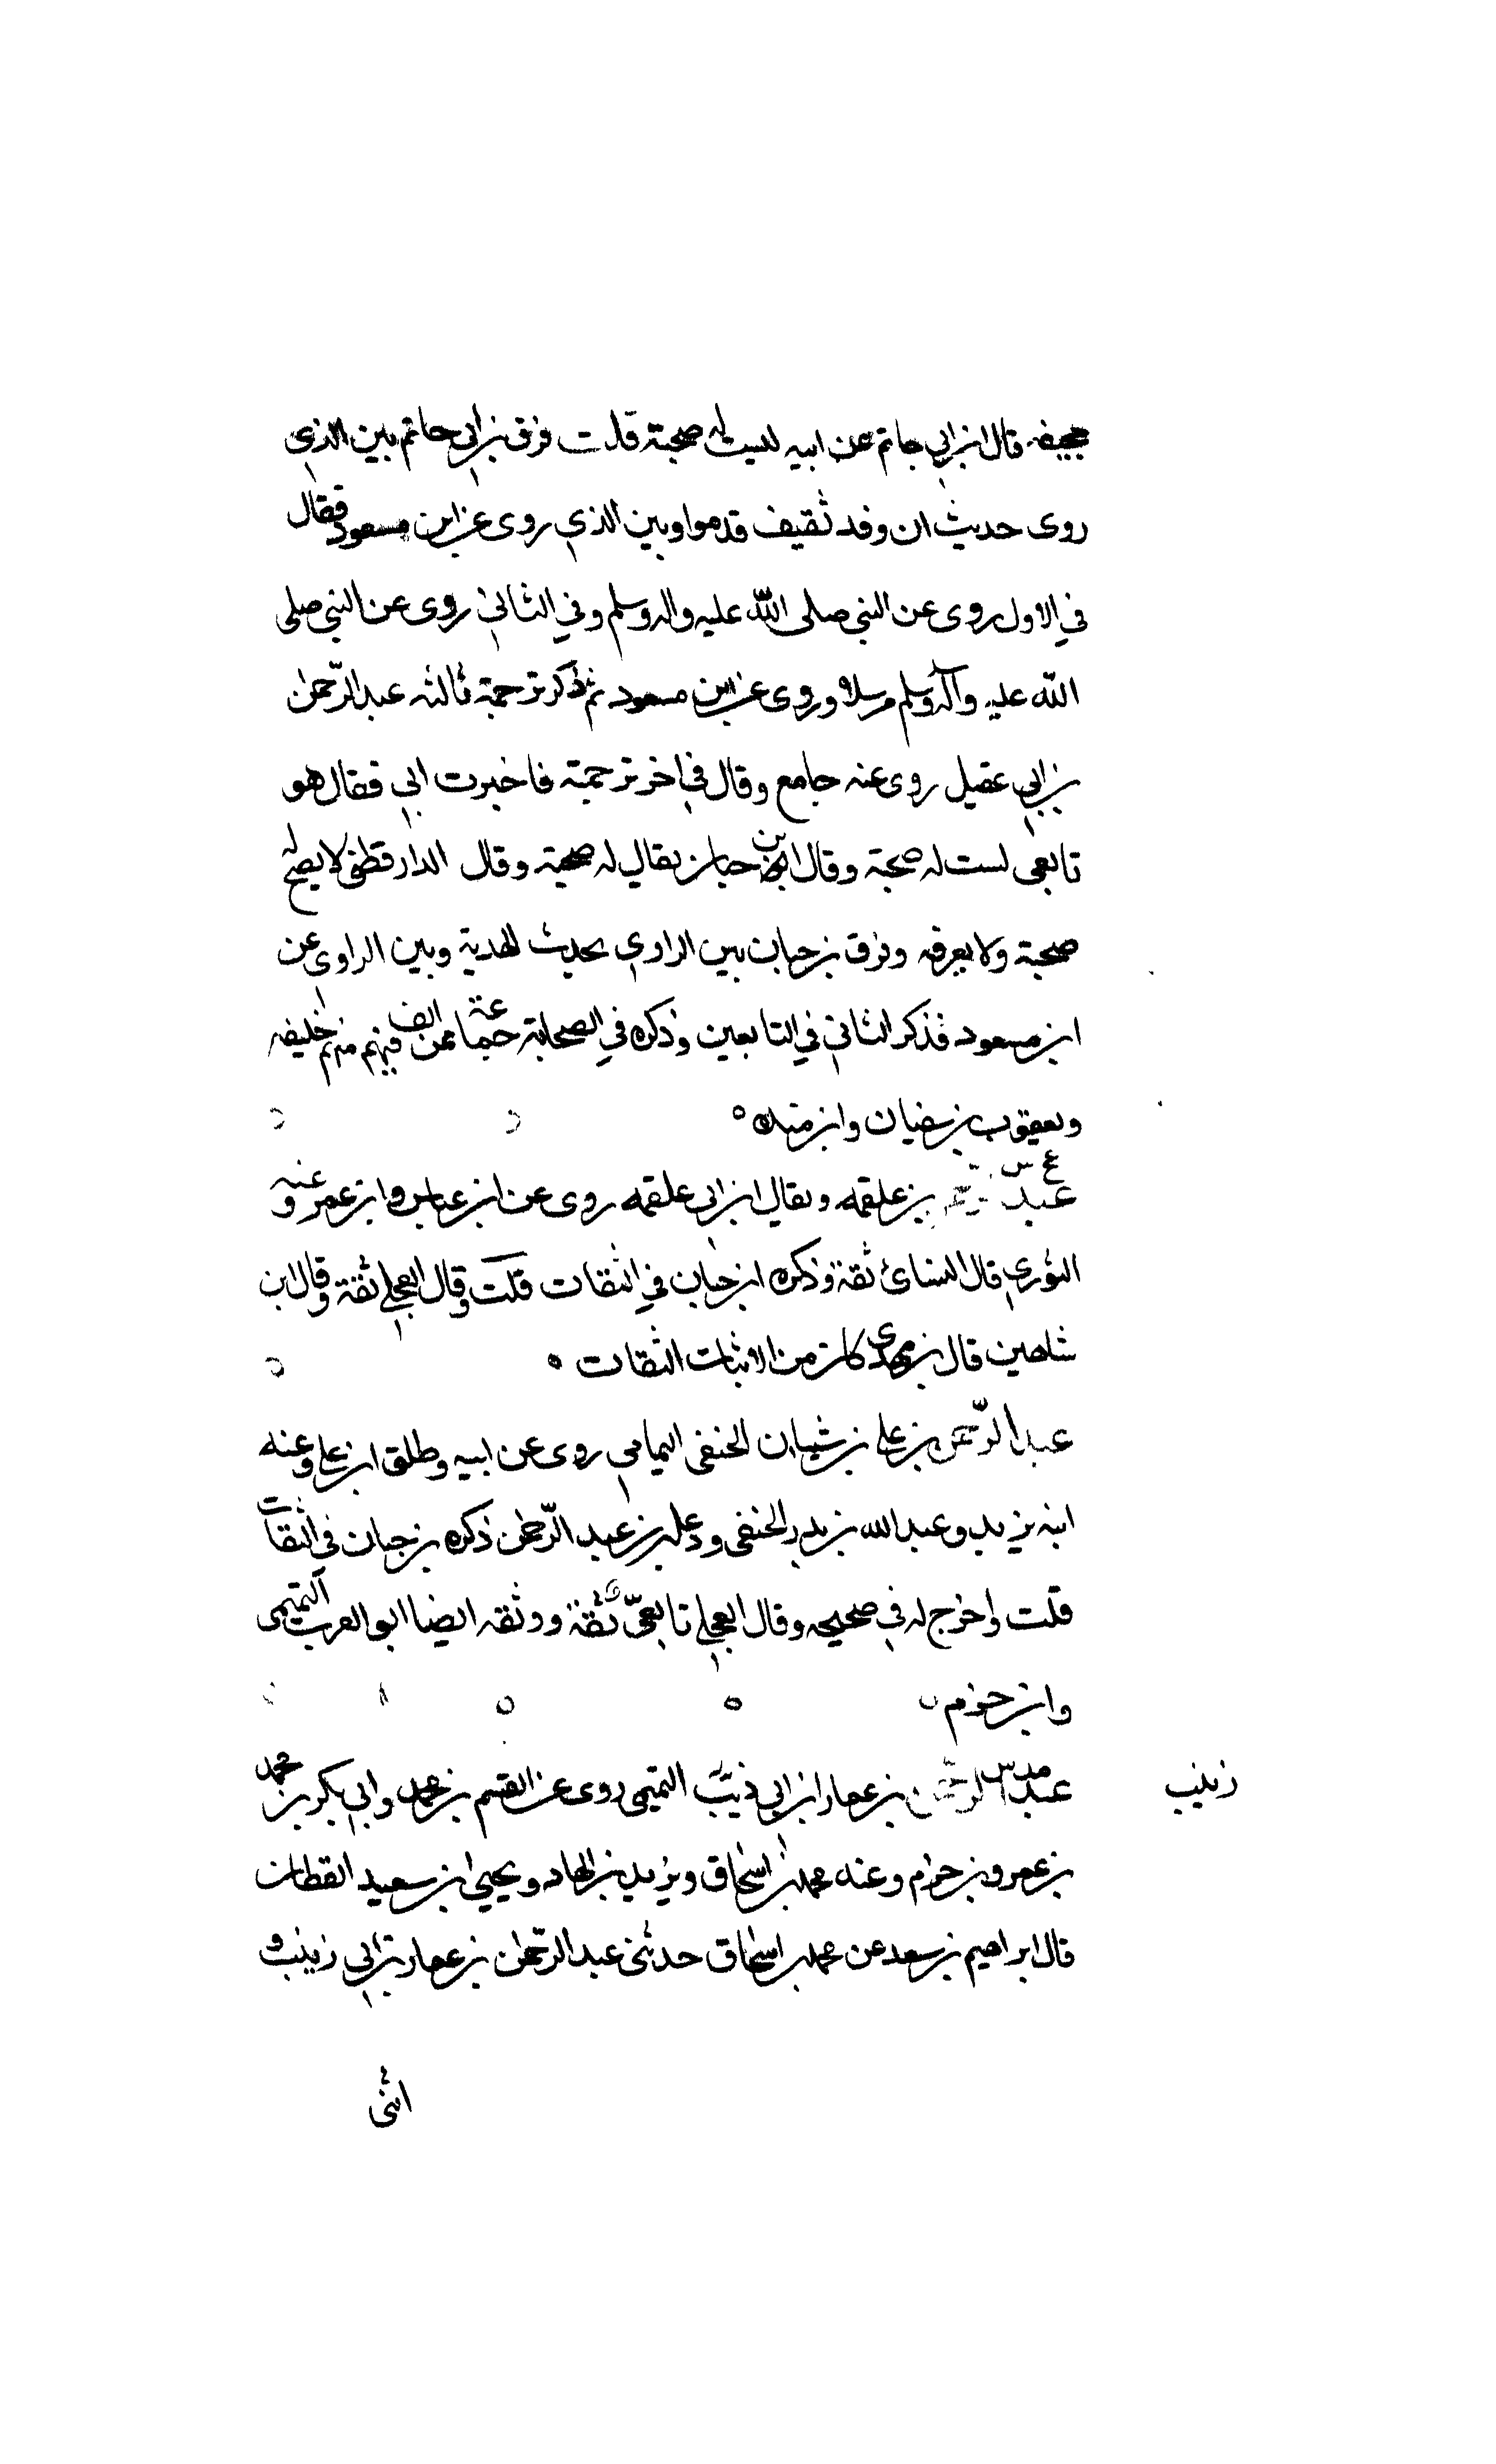 جحيفه قال ابن ابي حاتم عن ابيه ليست له صحبة قلت فرق بن ابي حاتم بين الذي
روى حديث ان وفد ثقيف قدموا وبين الذي روى عن ابن مسعود فقال
في الاول روى عن النبي صلى الله عليه واله وسلم وفي الثاني روى عن النبي صلى
الله عليه وآله وسلم مرسلا وروى عن ابن مسعود ثم ذكر ترجمة ثالثه عبد الرحمن
بن ابي عقيل روى عنه جامع وقال في اخر ترجمته فاخبرت ابي فقال هو
تابعي ليست له صحبة وقال ابن حبان يقال له صحبة وقال الدارقطني لا يصح له
صحبة ولا يعرفه وفرق بن حبان بين الراوي لحديث الهدية وبين الراوي عن
ابن مسعود فذكر الثاني في التابعين وذكره في الصحابة جماعة ممن الف فيهم منهم خليفه
ويعقوب بن سفيان وابن منده
ع س
عبد الرحمن بن علقمه ويقال ابن ابي علقمه روى عن ابن عباس وابن عمر وعنه
الثوري قال النسائ ثقة وذكره ابن حبان في الثقات قلت وقال العجلي ثقة وقال ابن
شاهين قال بن مهدي كان من الاثبات الثقات
عبد الرحمن بن علي بن شيبان الحنفي اليمامي روى عن ابيه وطلق ابن علي وعنه
ابنه يزيد وعبد الله بن بدر الحنفي ووعلة بن عبد الرحمن ذكره بن حبان في الثقات
قلت واخرج له في صحيحه وقال العجلي تابعيّ ثقة ووثقه ايضا ابو العرب التميمي
وابن حزم
عبد الرحمن بن عمار ابن ابي ذيب التميمي روى عن القسم بن محمد وابي بكر بن محمد
زينب
بن عمرو بن حزم وعنه محمد بن اسحاق ويزيد بن الهاد ويحيى ابن سعيد القطان
قال ابراهيم بن سعد عن محمد بن اسحاق حدثني عبد الرحمن بن عمار بن ابي زينب و
اثنى